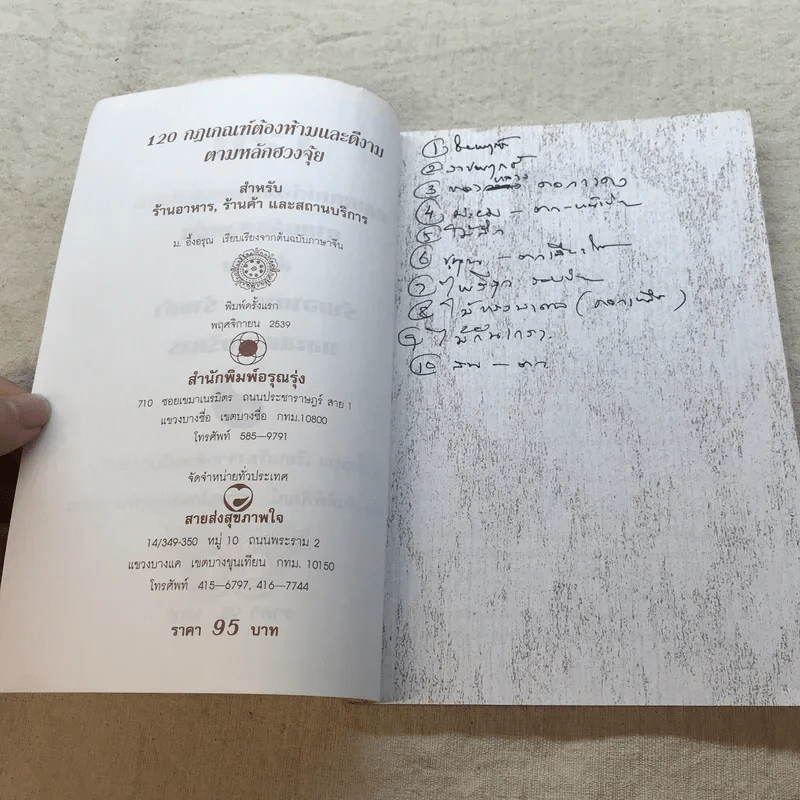 120 กฎเกณฑ์ต้องห้ามและดีงาม
ตามหลักฮวงจุ้ย
สำหรับ
ร้านอาหาร, ร้านค้า และสถานบริการ
ม. อึ้งอรุณ เรียบเรียงจากต้นฉบับภาษาจีน
พิมพ์ครั้งแรก
พฤศจิกายน 2539
สำนักพิมพ์อรุณรุ่ง
710 ซอยเขมาเนรมิตร ถนนประชาราษฎร์ สาย 1
แขวงบางซื่อ เขตบางซื่อ กทม.10800
โทรศัพท์ 585—9791
จัดจำหน่ายทั่วประเทศ
สายส่งสุขภาพใจ
14/349-350 หมู่ 10 ถนนพระราม 2
แขวงบางแค เขตบางขุนเทียน กทม. 10150
โทรศัพท์ 415—6797, 416—7744
ราคา 95 บาท
1
2 ราชพฤกษ์
3
4 มะยม —
5 ไม้สัก
6 ขนุน —
7
8
9
10